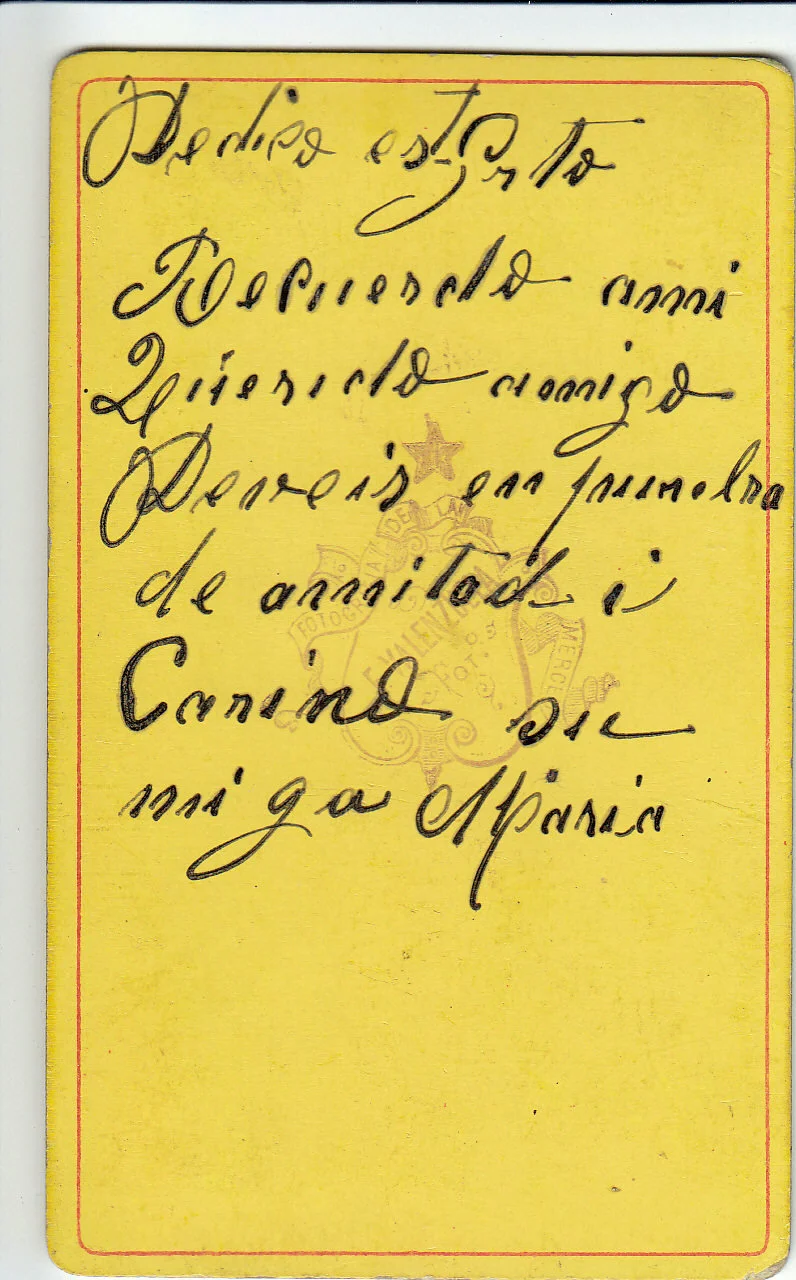 Dedico este
Recuerdo ami
Querido amigo
en prueba
de amitad i
Carino su
miga Maria
FOTOGRAFIA DE LA
E. VALENZUELA
FOT.
MERCED